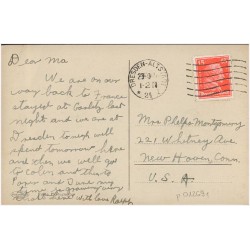 Dear Ma
We are on our
way back to France
stayed at
last night and we are at
Dresden to night will
spend tomorrow here
and then we will go
to and then to
Paris and
with love Ralph
DRESDEN-ALTSTADT
Mrs Phelps Montgomery
221 Whitney Ave
New Haven, Conn.
U.S.A.